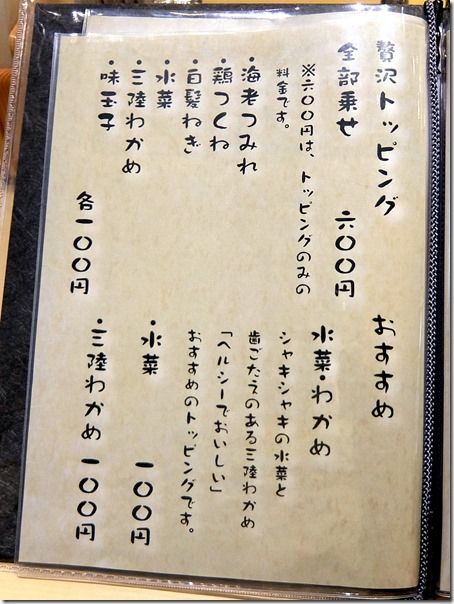 贅沢トッピング
全部乗せ 六〇〇円
※六〇〇円は、トッピングのみの
料金です。
・海老つみれ
・鶏つくね
・白髪ねぎ
・水菜
・三陸わかめ
・味玉子
各一〇〇円
おすすめ
水菜・わかめ
シャキシャキの水菜と
歯ごたえのある三陸わかめ
「ヘルシーでおいしい」
おすすめのトッピングです。
・水菜 一〇〇円
・三陸わかめ 一〇〇円